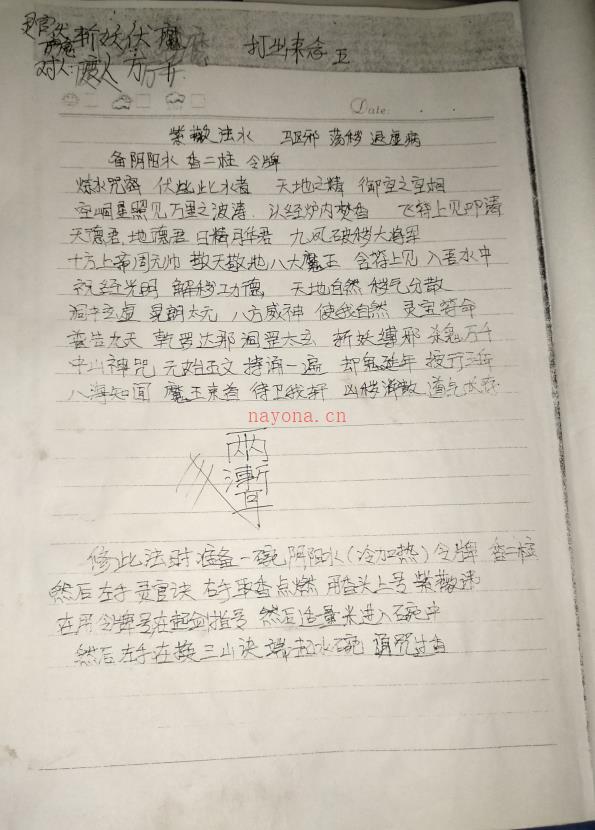 斩妖伏魔
Date:
紫薇法水 驱邪 荡秽 退虚病
备阴阳水 香二柱 令牌
炼水咒 伏此水者 天地之精 御空之
照见万里之波涛 炉内焚香 飞符上见
天德君 地德君 日精月华君 九凤破秽大将军
十方上帝周元帅 敕天敕地八大魔王 含符上见 入吾水中
光明 解秽功德 天地自然 秽气分散
洞中玄虚 晃朗太元 八方威神 使我自然 灵宝符命
普告九天 乾罗达那 洞罡太玄 斩妖缚邪 杀鬼万千
中山神咒 元始玉文 持诵一遍 却鬼延年 按行五岳
八海知闻 魔王束首 侍卫我轩 凶秽消散 道气长存
nayona.cn
修此法时 准备一碗阴阳水(冷加热)令牌 香二柱
然后左手灵官诀 右手拿香点燃 用香头上号 紫薇讳
在用令牌号在起剑指号 然后适量米进入碗中
然后左手在换三山诀 端起水碗 诵咒